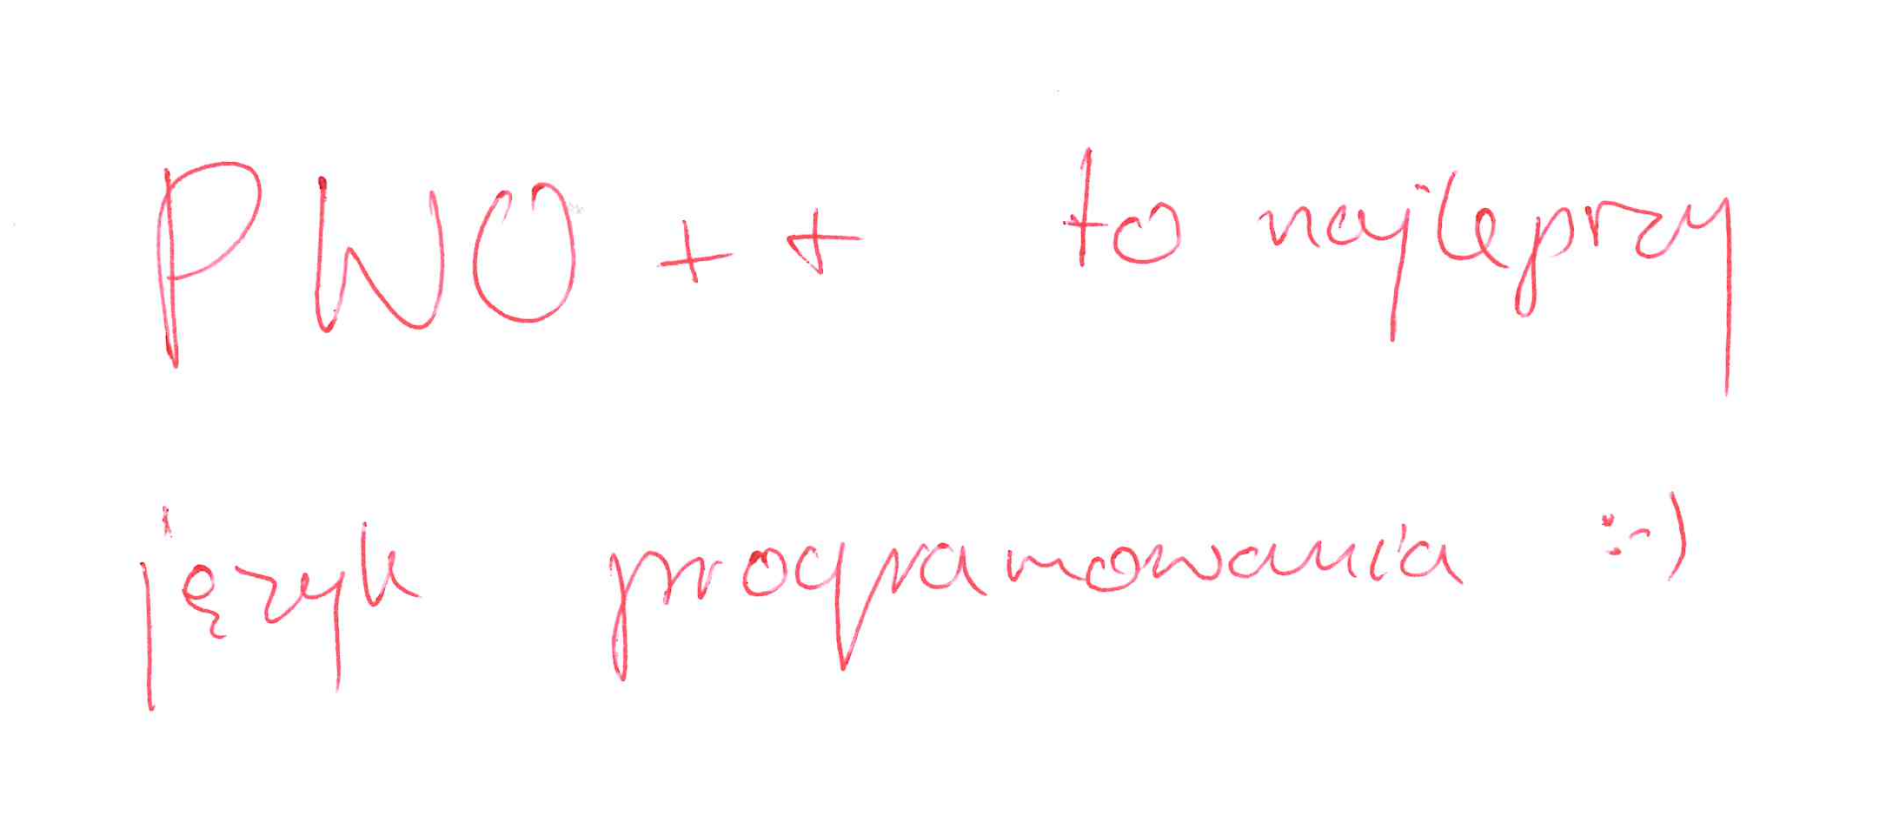 PWO++ to najleprzy
język programowania :-)